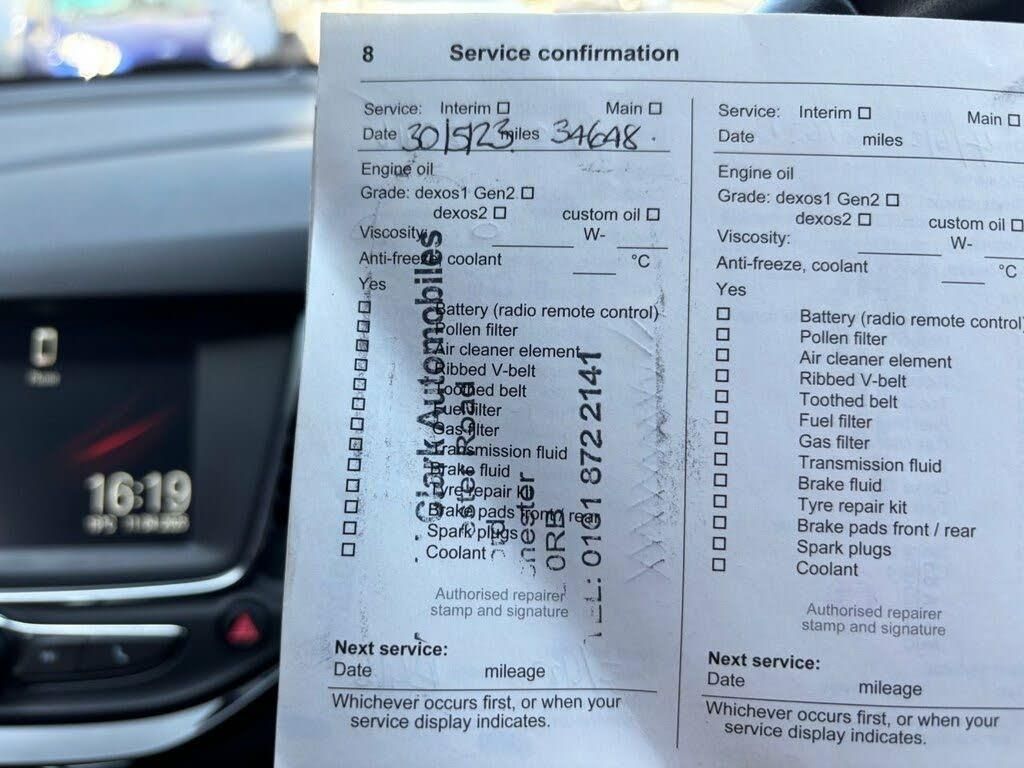 8 Service confirmation
Service: Interim Main
Date 30/5/23 miles 34648.
Engine oil
Grade: dexos1 Gen2
dexos2 custom oil
Viscosity: W-
Anti-freeze, coolant °C
Yes
Battery (radio remote control)
Pollen filter
Air cleaner element
Ribbed V-belt
Toothed belt
Fuel filter
Gas filter
Transmission fluid
Brake fluid
Tyre repair kit
Brake pads front / rear
Spark plugs
Coolant
Authorised repairer
stamp and signature
Next service:
Date mileage
Whichever occurs first, or when your
service display indicates.
Clark Automobiles
Road
0RB
0161 872 2141
Service: Interim Main
Date miles
Engine oil
Grade: dexos1 Gen2
dexos2 custom oil
Viscosity: W-
Anti-freeze, coolant °C
Yes
Battery (radio remote control)
Pollen filter
Air cleaner element
Ribbed V-belt
Toothed belt
Fuel filter
Gas filter
Transmission fluid
Brake fluid
Tyre repair kit
Brake pads front / rear
Spark plugs
Coolant
Authorised repairer
stamp and signature
Next service:
Date mileage
Whichever occurs first, or when your
service display indicates.
16:19